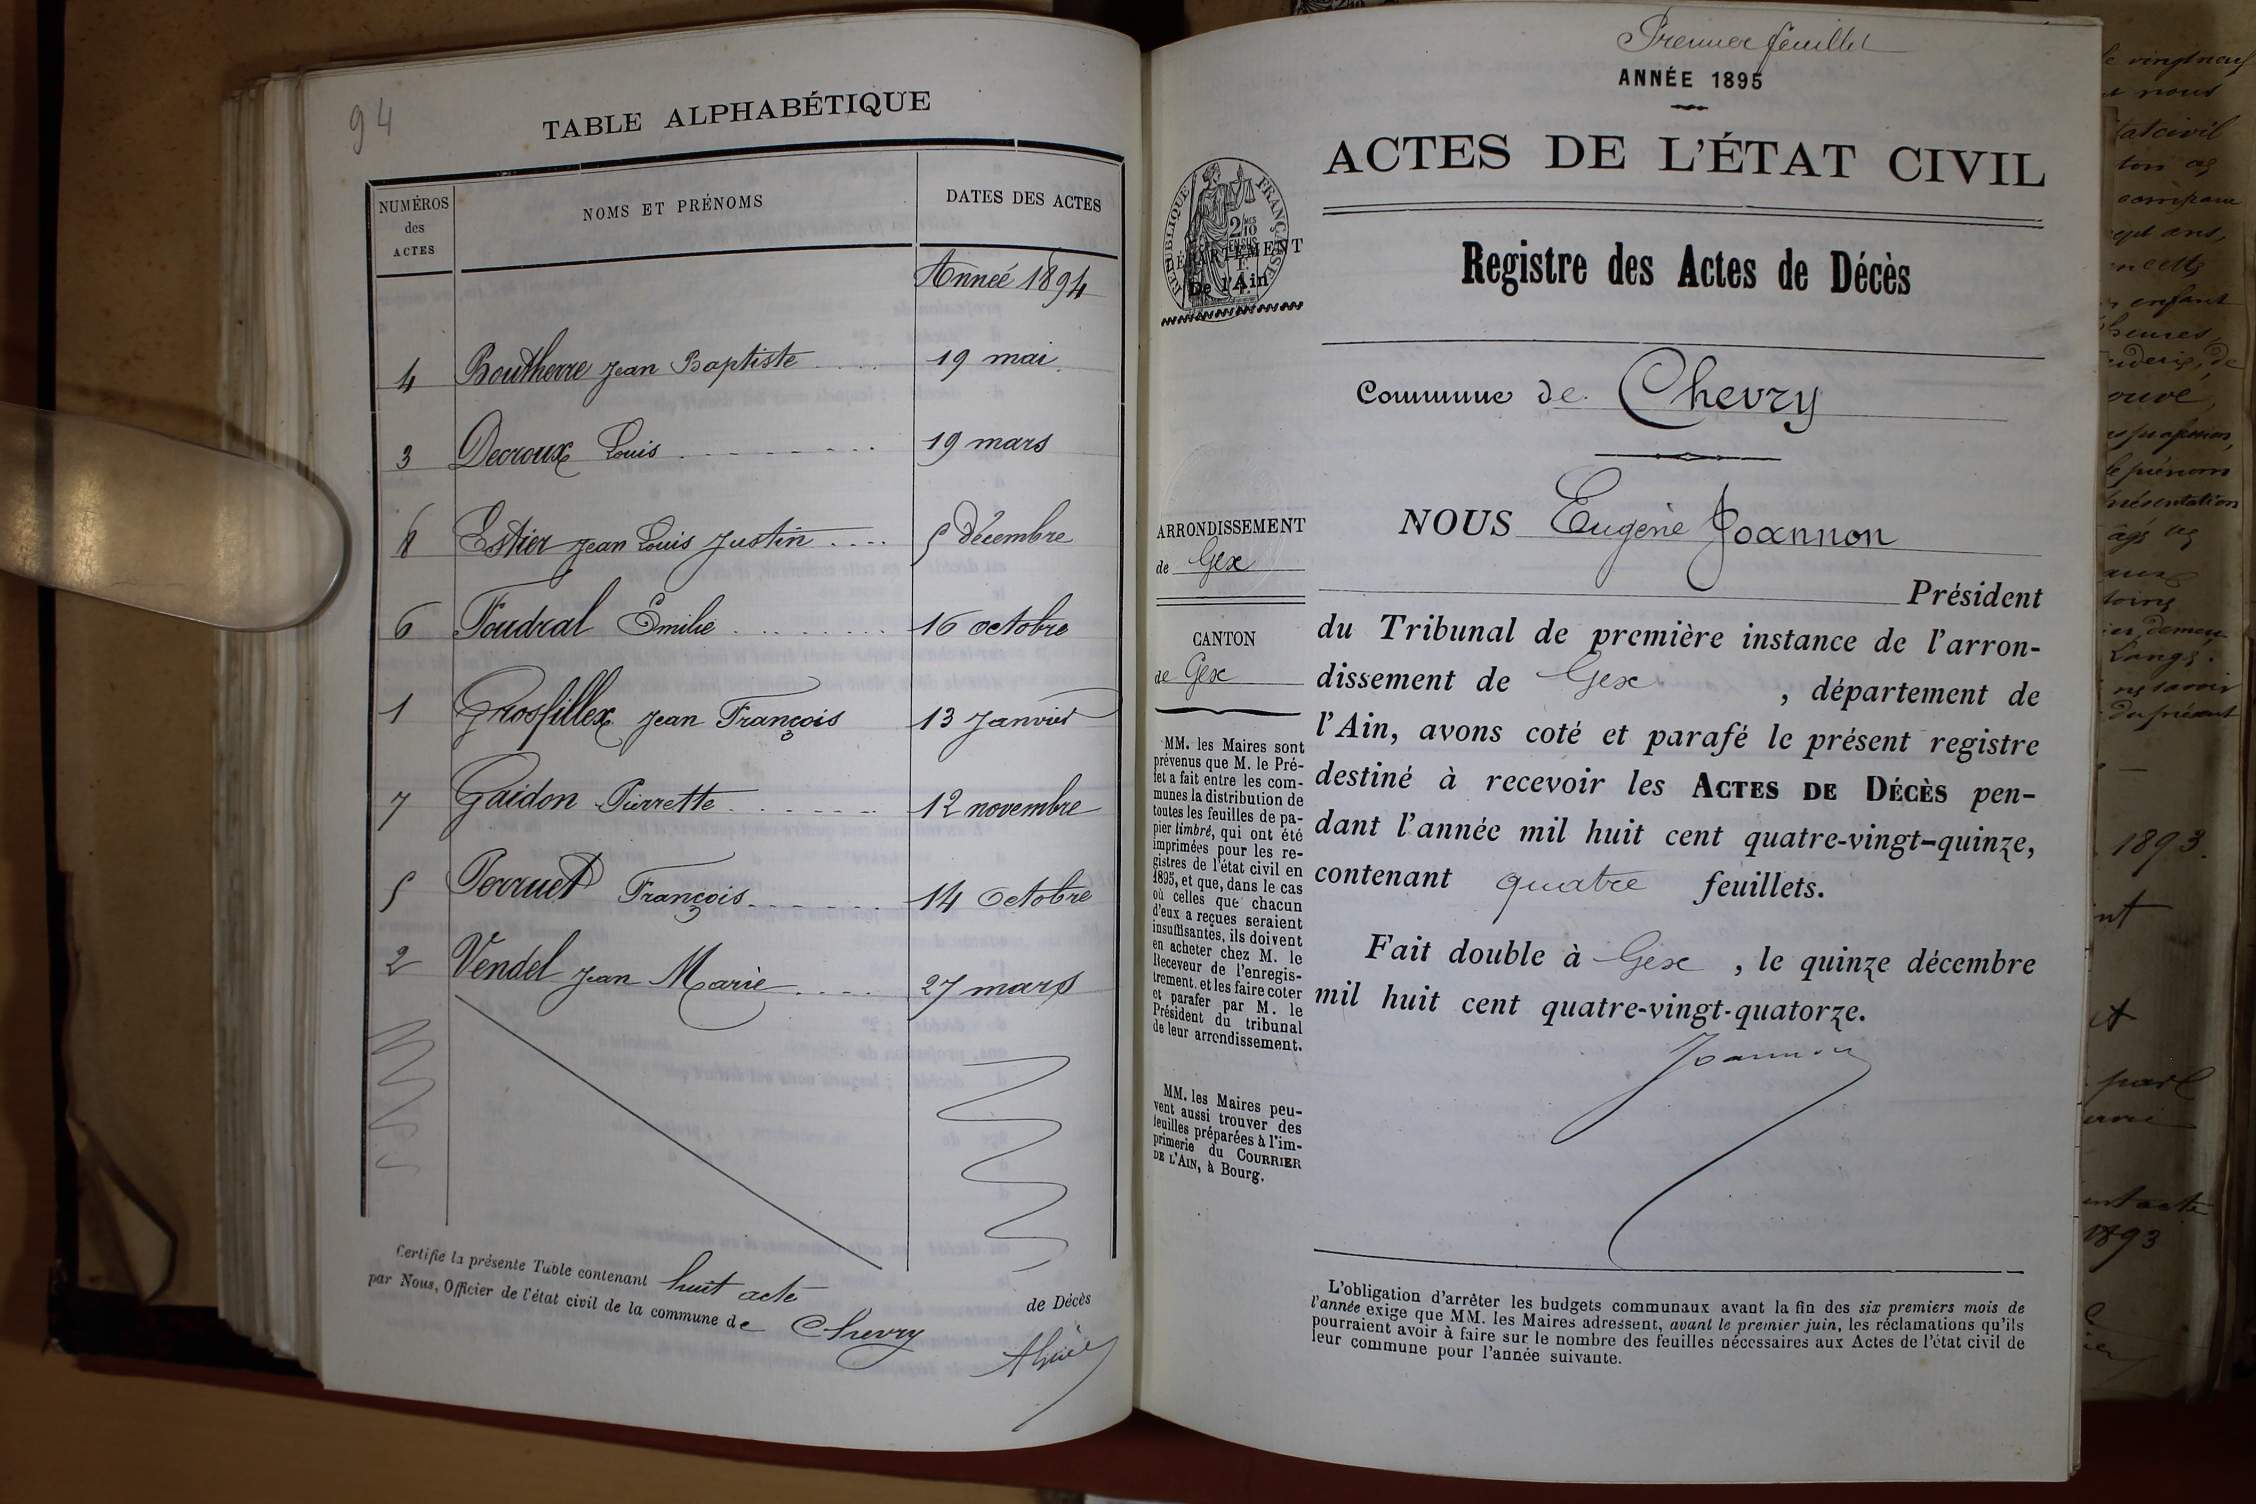 94
TABLE ALPHABÉTIQUE
NUMÉROS des ACTES
NOMS ET PRÉNOMS
DATES DES ACTES
Année 1894
4 Boutherre Jean Baptiste 19 mai
3 Decroux Louis 19 mars
8 Estier Jean Louis Justin 5 Décembre
6 Foudral Emilie 16 octobre
1 Grosfillex Jean François 13 Janvier
7 Gaidon Pierrette 12 novembre
5 Perruet François 14 Octobre
2 Vendel Jean Marie 27 mars
Certifie la présente Table contenant huit acte de Décès
par Nous, Officier de l'état civil de la commune de Chevry
Premier feuillet
ANNÉE 1895
ACTES DE L'ÉTAT CIVIL
RÉPUBLIQUE FRANÇAISE
DÉPARTEMENT
De l'Ain
Registre des Actes de Décès
Commune de Chevry
ARRONDISSEMENT
de Gex
CANTON
de Gex
MM. les Maires sont
prévenus que M. le Pré-
fet a fait entre les com-
munes la distribution de
toutes les feuilles de pa-
pier timbré, qui ont été
imprimées pour les re-
gistres de l'état civil en
1895, et que, dans le cas
où celles que chacun
d'eux a reçues seraient
insuffisantes, ils doivent
en acheter chez M. le
Receveur de l'enregis-
trement, et les faire coter
et parafer par M. le
Président du tribunal
de leur arrondissement.
MM. les Maires peu-
vent aussi trouver des
feuilles préparées à l'im-
primerie du COURRIER
DE L'AIN, à Bourg.
NOUS Eugène Joannon
Président
du Tribunal de première instance de l'arron-
dissement de Gex , département de
l'Ain, avons coté et parafé le présent registre
destiné à recevoir les ACTES DE DÉCÈS pen-
dant l'année mil huit cent quatre-vingt-quinze,
contenant quatre feuillets.
Fait double à Gex , le quinze décembre
mil huit cent quatre-vingt-quatorze.
Joannon
L'obligation d'arrêter les budgets communaux avant la fin des six premiers mois de
l'année exige que MM. les Maires adressent, avant le premier juin, les réclamations qu'ils
pourraient avoir à faire sur le nombre des feuilles nécessaires aux Actes de l'état civil de
leur commune pour l'année suivante.